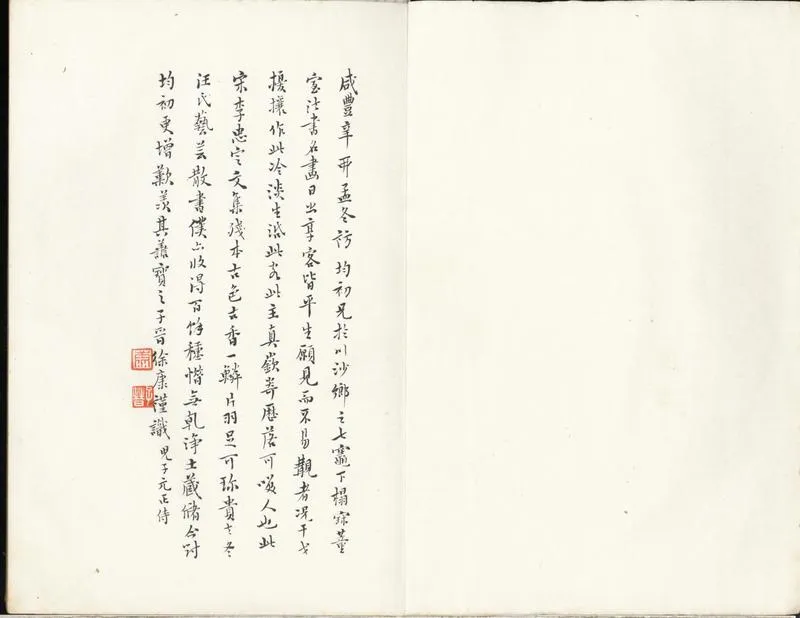 咸豐辛酉孟冬訪均初兄於川沙鄉之七竈下榻寶董
室法書名畫日出享客皆平生願見而不易觀者況干戈
擾攘作此冷淡生活此客此主真嶔崎歷落可喚人也此
宋李忠定文集殘本古色古香一鱗片羽足可珍貴去冬
汪氏藝芸散書僕亦收得百餘種惜無乾淨土藏儲今對
均初更增歎羨其善寶之子晉徐康謹識兒子元正侍